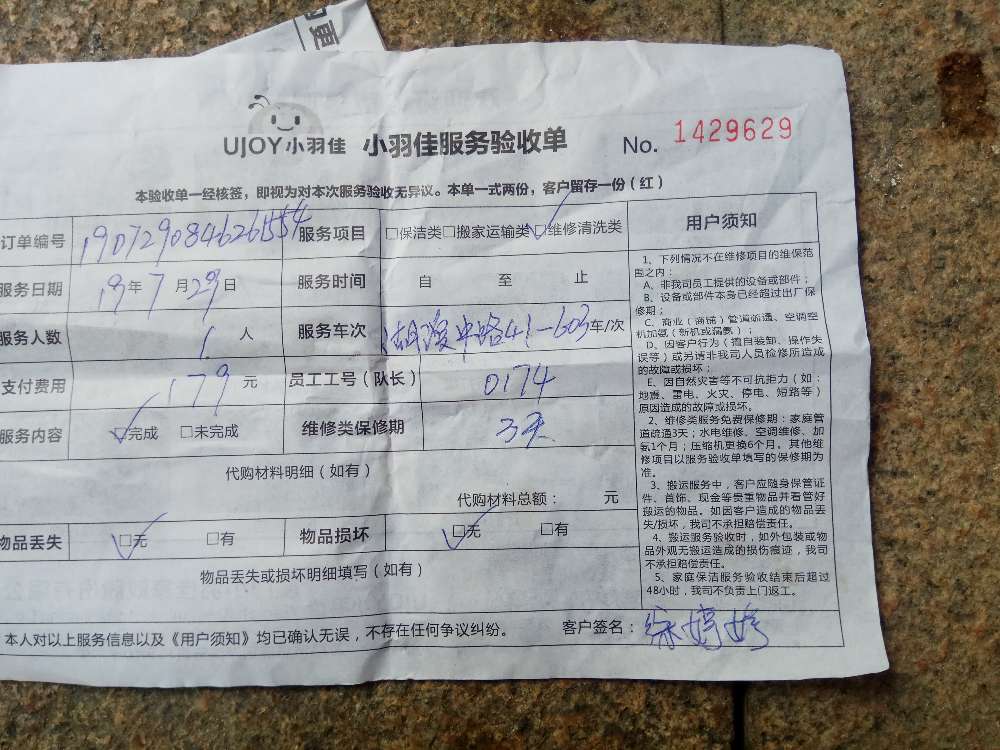 UJOY小羽佳 小羽佳服务验收单 No. 1429629
本验收单一经核签，即视为对本次服务验收无异议。本单一式两份，客户留存一份（红）
订单编号 190729084626 服务项目 □保洁类□搬家运输类☑维修清洗类
服务日期 19年7月29日 服务时间 自 至 止
服务人数 1人 服务车次 中路41-603车/次
支付费用 179元 员工工号（队长） 0174
服务内容 ☑完成 □未完成 维修类保修期 3天
代购材料明细（如有）
代购材料总额： 元
物品丢失 ☑无 □有 物品损坏 ☑无 □有
物品丢失或损坏明细填写（如有）
本人对以上服务信息以及《用户须知》均已确认无误，不存在任何争议纠纷。 客户签名：婷婷
用户须知
1、下列情况不在维修项目的维保范
围之内：
A、非我司员工提供的设备或部件；
B、设备或部件本身已经超过出厂保
修期；
C、商业（商铺）管道疏通、空调空
机加氨（新机或漏氨）；
D、因客户行为（擅自装卸、操作失
误等）或另请非我司人员检修所造成
的故障或损坏；
E、因自然灾害等不可抗拒力（如：
地震、雷电、火灾、停电、短路等）
原因造成的故障或损坏。
2、维修类服务免费保修期：家庭管
道疏通3天；水电维修、空调维修、加
氨1个月；压缩机更换6个月。其他维
修项目以服务验收单填写的保修期为
准。
3、搬运服务中，客户应随身保管证
件、首饰、现金等贵重物品并看管好
搬运的物品。如因客户造成的物品丢
失/损坏，我司不承担赔偿责任。
4、搬运服务验收时，如外包装或物
品外观无搬运造成的损伤痕迹，我司
不承担赔偿责任。
5、家庭保洁服务验收结束后超过
48小时，我司不负责上门返工。